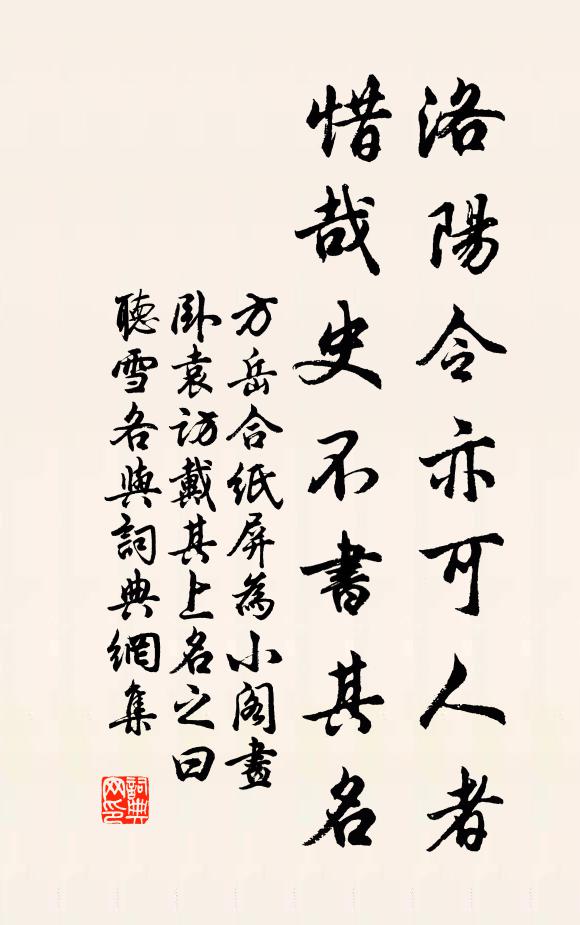 洛陽令亦可人者
惜哉史不書其名
方岳合紙屏為小閣畫
臥袁訪戴其上名之曰
聽雪各與詞典網集
詞典
网印